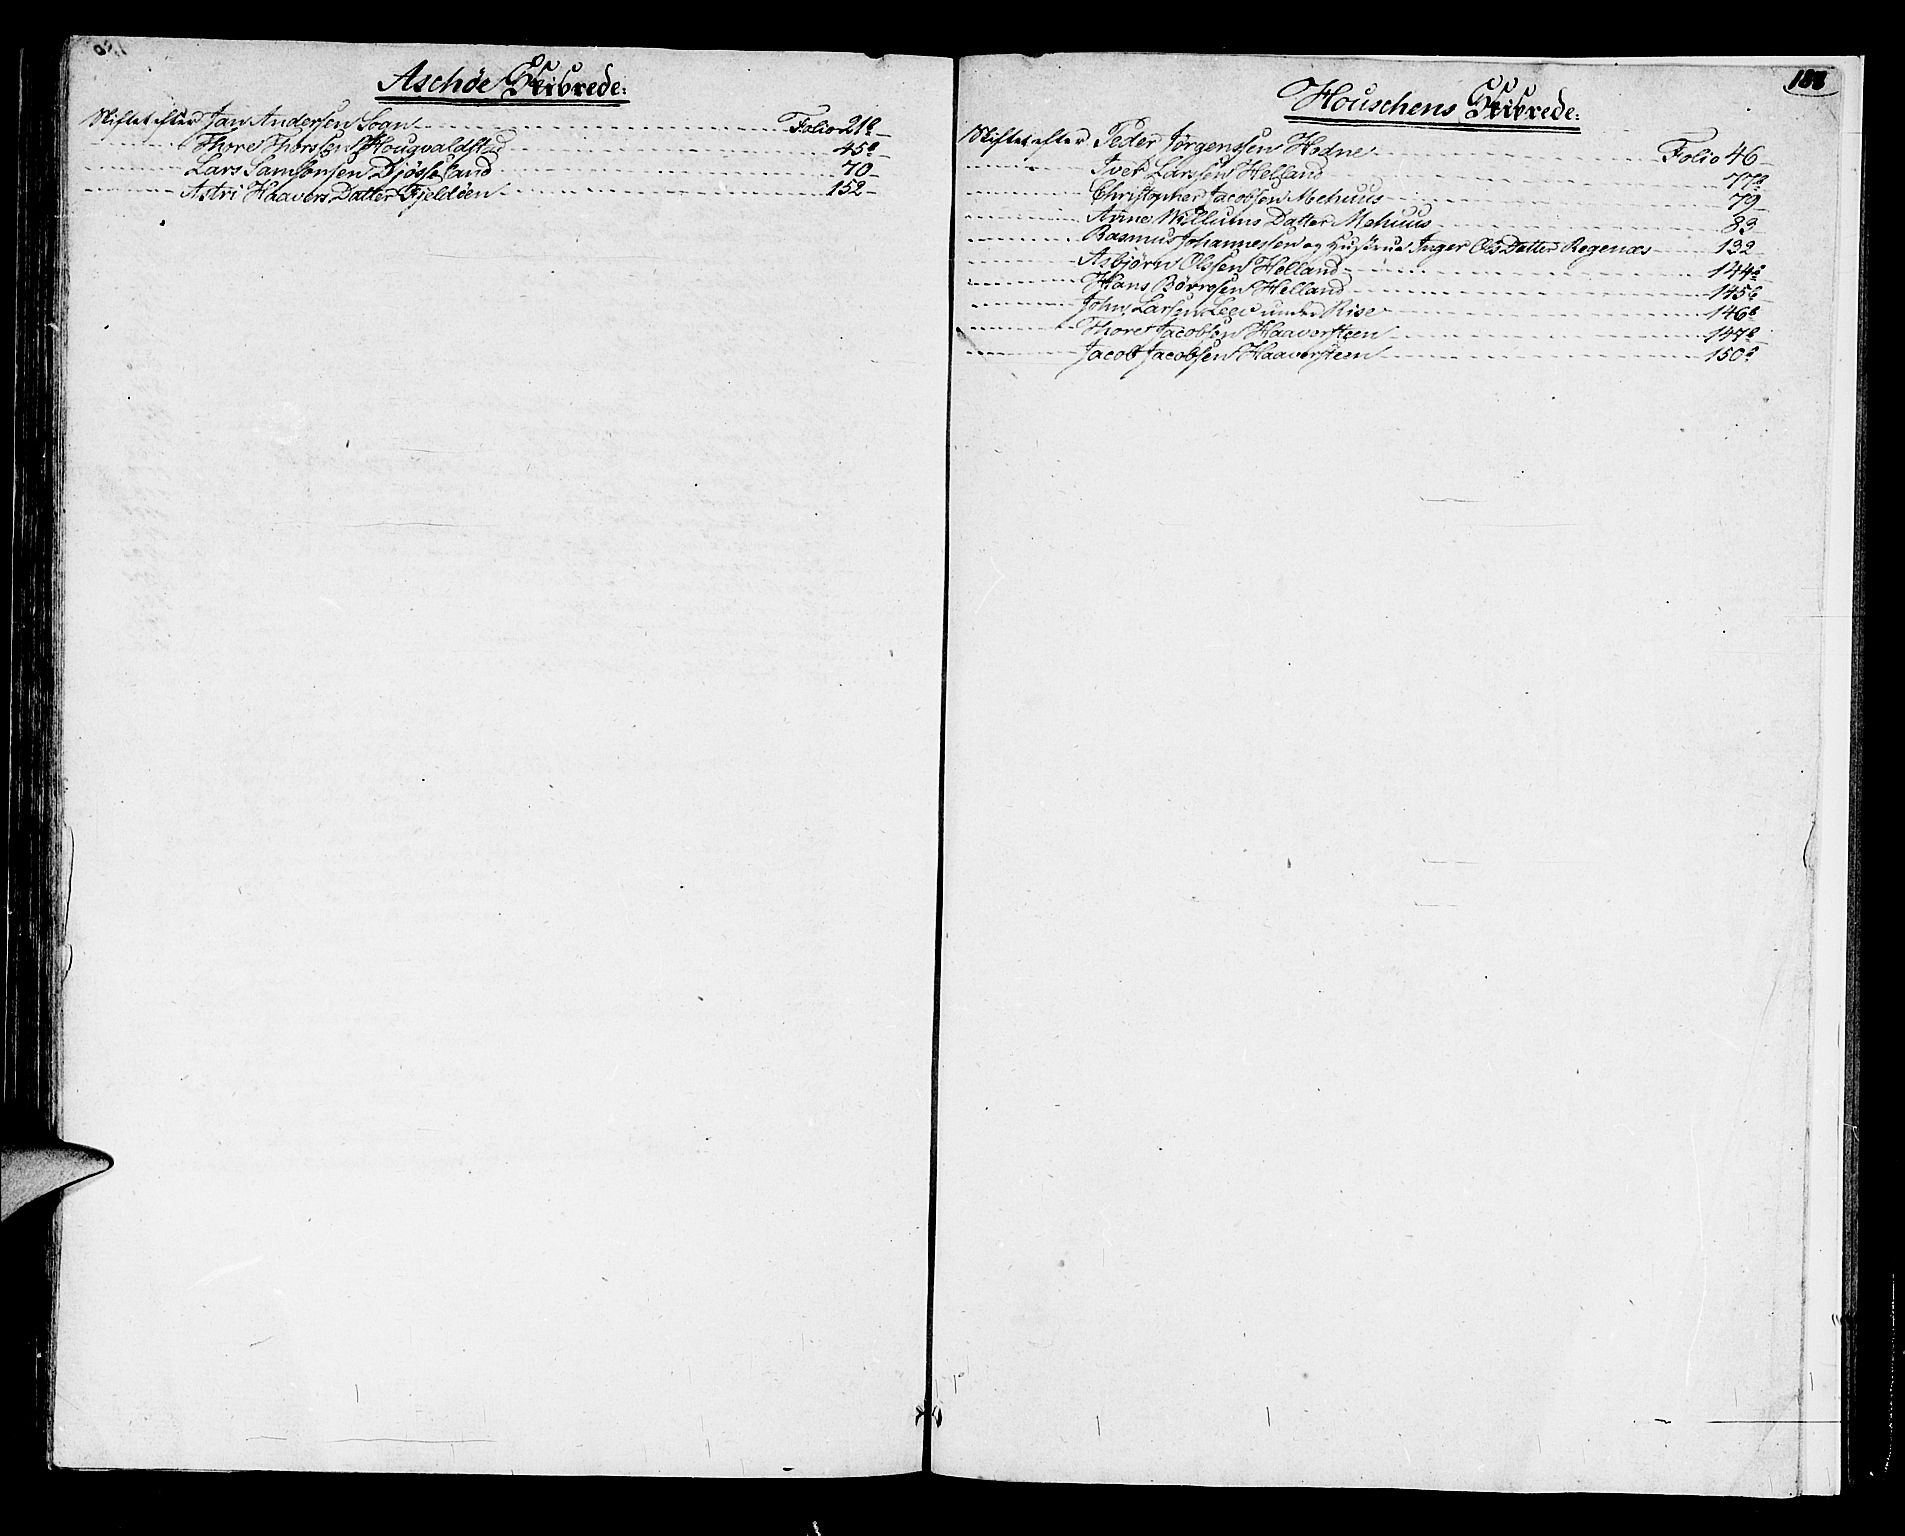 Aschöe Skibrede:
Skiftet efter Jan Andersen Sogn Folio 21b
Thore Thorssen Hougvaldstad 45b
Lars Samsonsen Djösseland 70
Astri Haavers Datter Fjeldöen 152
188
Houschens Skibrede:
Skiftet efter Peder Jörgenssen Hodne Folio 46
Iver Larssen Helland 77b
Christopher Jacobsen Mehuus 79
Anne Willums Datter Mehuus 83
Rasmus Johannessen og Hustrue Inger Ols Datter Regenæs 132
Asbjörn Olssen Helland 144b
Hans Börresen Helland 145b
John Larsen under Rise 146b
Thore Jacobsen Haaversteen 147b
Jacob Jacobsen Haaversteen 150b